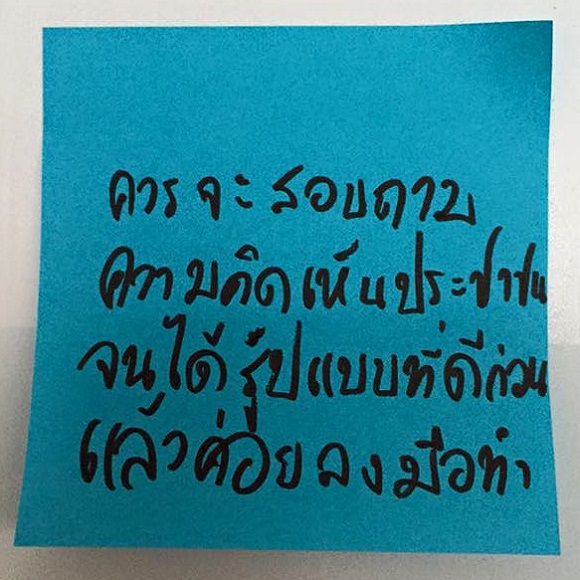 ควรจะสอบถาม
ความคิดเห็นประชาชน
จนได้รูปแบบที่ดีก่อน
แล้วค่อยลงมือทำ